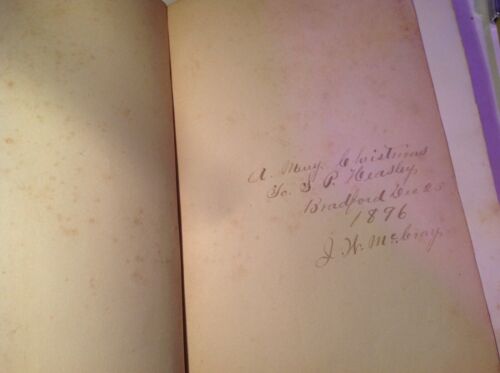 A Merry Christmas
To S. P. Heasley
Bradford Dec 25
1896
J. W. McCray